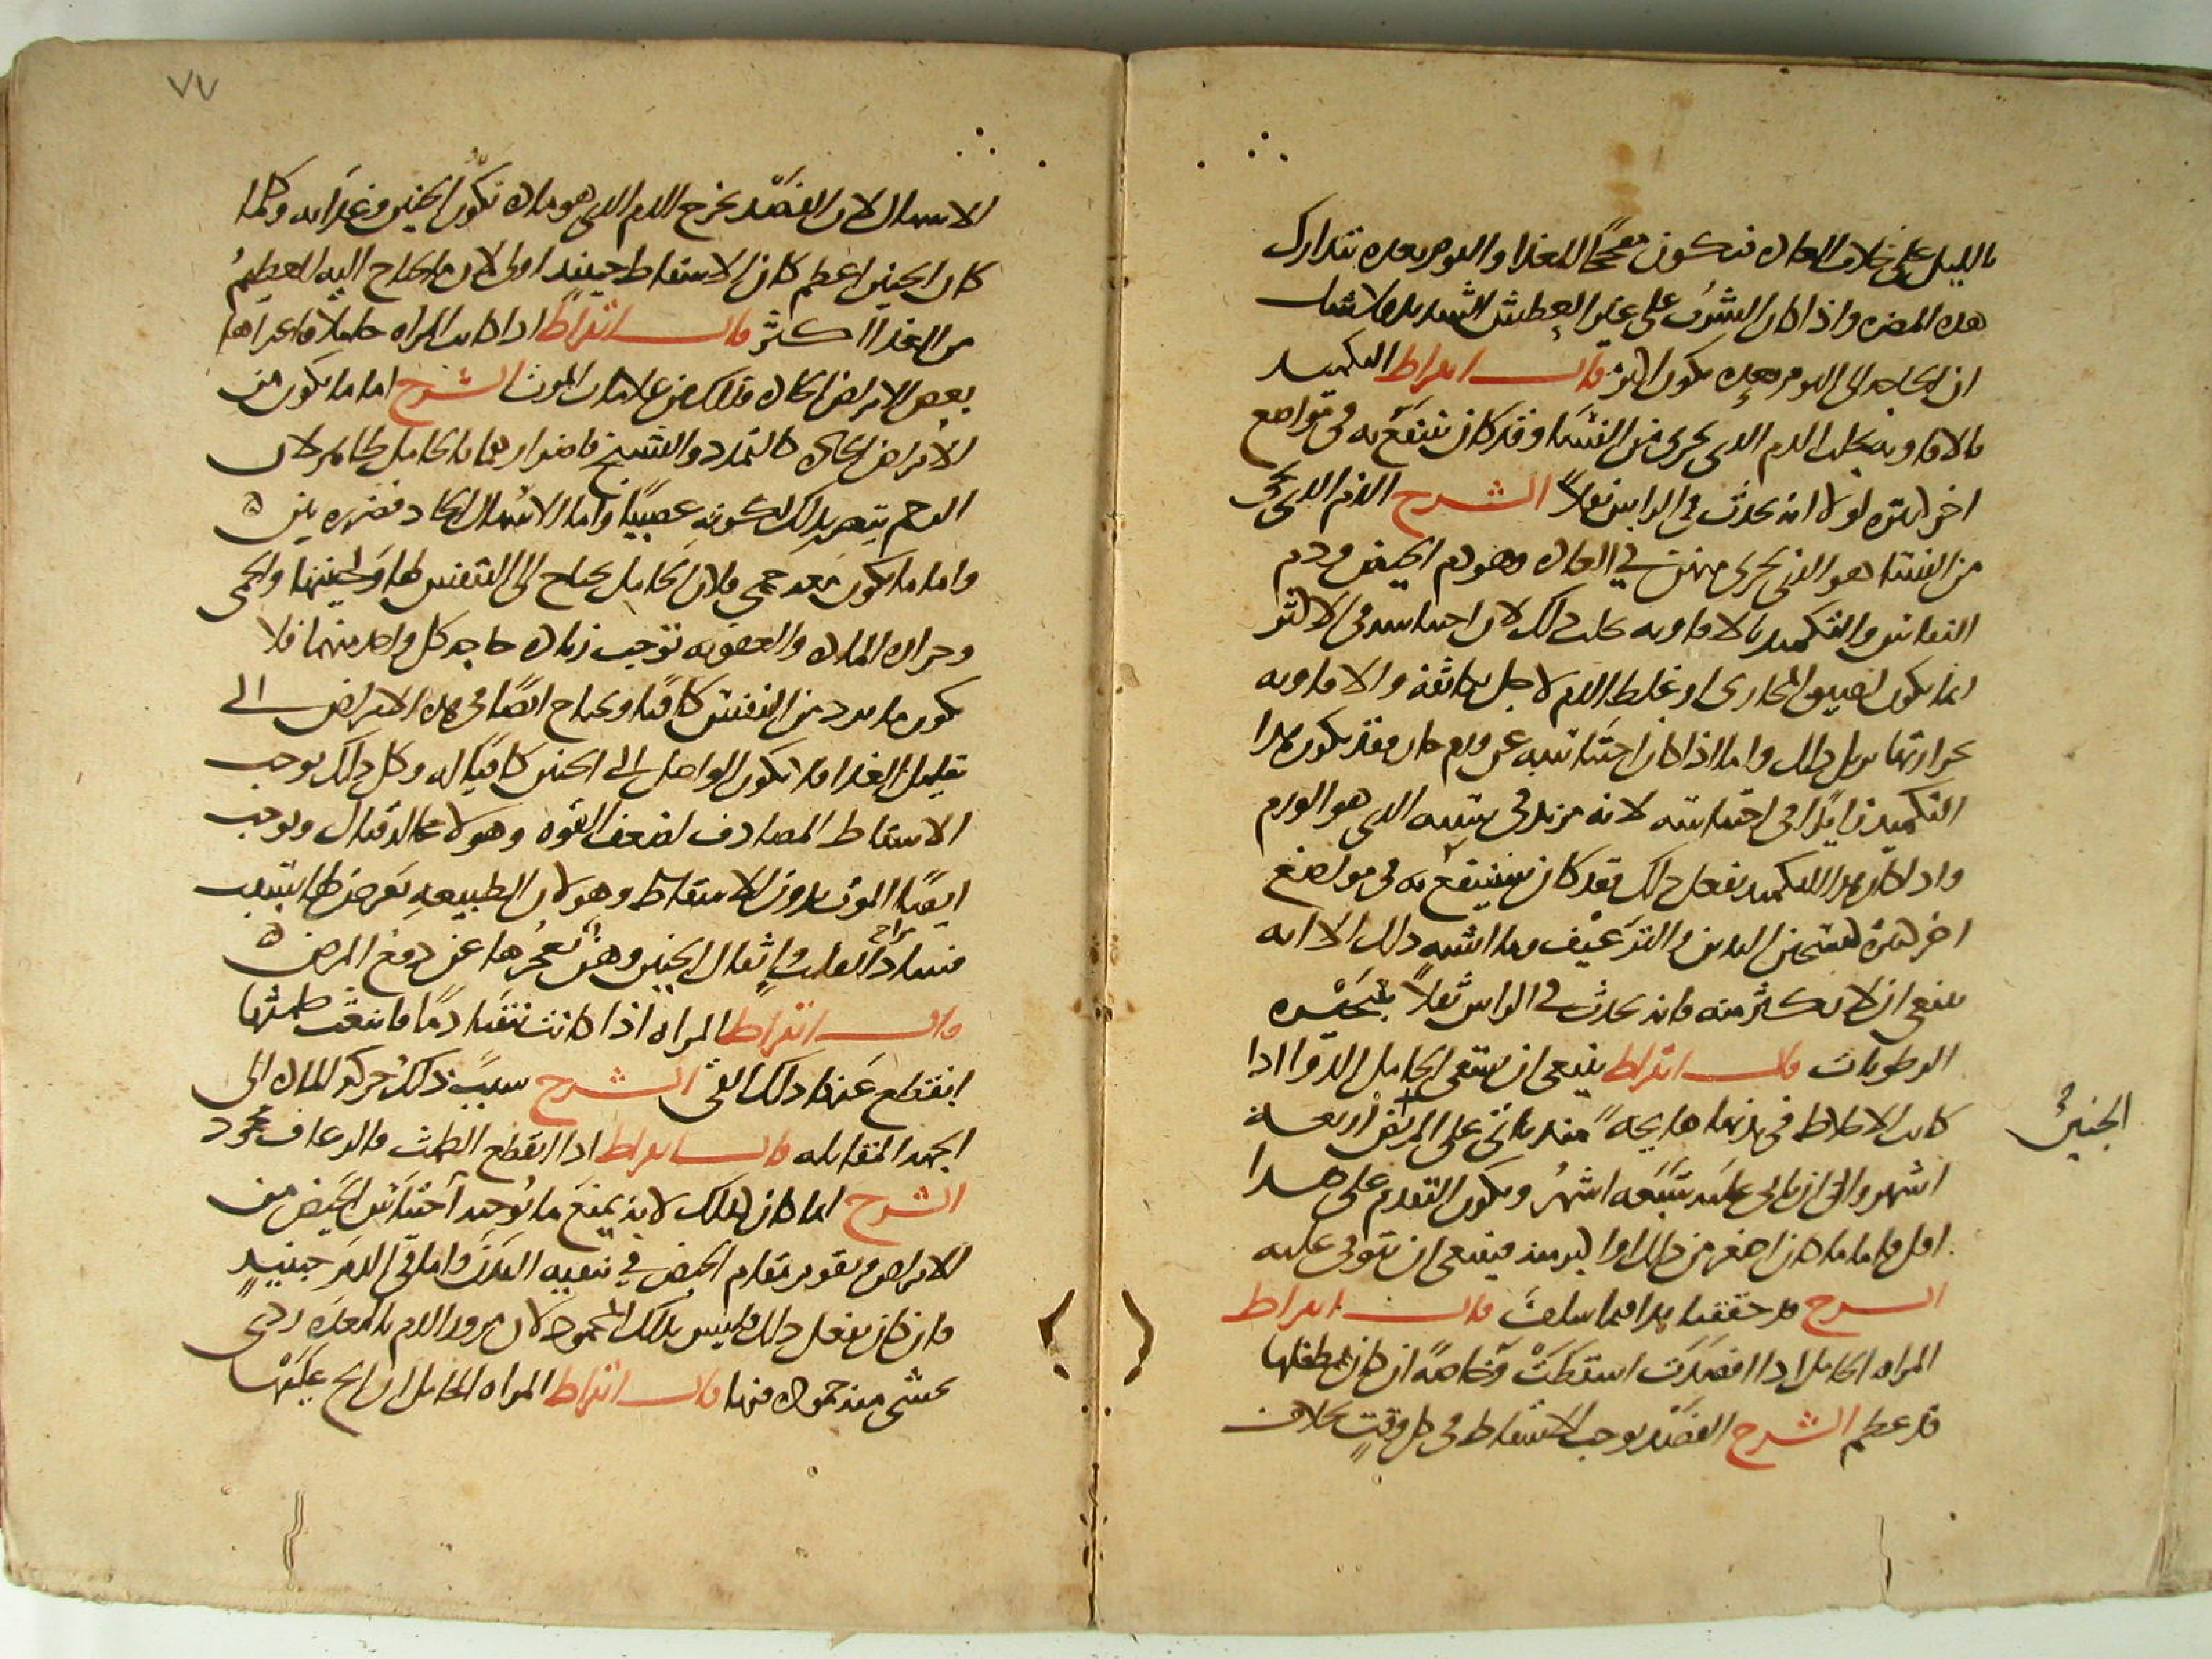 بالليل على خلاف العاده فيكون مفججًا للغذا والنوم بعده يتدارك
هذه المضره واذا كان الشرب على غير العطش الشديد فلا شك
ان الحاجه الى النوم بعده يكون اكثر قال ابقراط التكميد
بالافاويه يجلب الدم الذى يجرى من النسا وقد كان ينتفع به فى مواضع
اخر كثيره لولا انه يحدث فى الراس ثقلاً الشرح الدم الذى يجرى
من النسا هو الذى يجرى منهن في العاده وهو دم الحيض ودم
النفاس والتكميد بالافاويه يجلب ذلك لان احتباسه فى الاكثر
انما يكون لضيق المجارى او غلظ الدم لاجل تكاثفه والافاويه
بحرارتها تزيل ذلك واما اذا كان احتباسه عن ورم حار فقد يكون هذا
التكميد زايدًا فى احتباسه لانه يزيد فى سببه الذى هو الورم
واذا كان هذا التكميد يفعل ذلك فقد كان ينتفع به فى مواضع
اخر كثيره كتسخين البدن والترعيف وما اشبه ذلك الا انه
ينبغى ان لا يكثر منه فانه يحدث في الراس ثقلاً بتبخيره
الرطوبات قال ابقراط ينبغى ان تسقى الحامل الدوا اذا
كانت الاخلاط فى بدنها هايجه منذ ياتى على الجنين اربعه
الجنين
اشهر والى ان ياتى عليه سبعه اشهر ويكون التقدم على هذا
اقل واما ما كان اصغر من ذلك او اكبر منه فينبغى ان يتوقى عليه
الشرح قد حققنا هذا فيما سلف قال ابقراط
المراه الحامل اذا افصدت اسقطت وخاصةً ان كان طفلها
قد عظم الشرح الفصد يوجب الاسقاط فى كل وقتٍ بخلاف
٧٧
الاسهال لان الفصد يخرج الدم الذى هو ماده تكوّن الجنين وغذاىه وكلما
كان الجنين اعظم كان الاسقاط حينيذ اولى لان ما يحتاج اليه العظيم
من الغذا اكثر قال ابقراط اذا كانت المراه حاملاً فاعتراها
بعض الامراض الحاده فذلك من علامات الموت الشرح اما ما يكون من
الامراض الحاده كالتمدد والتشنج فاضرارهما بالحامل ظاهر لان
الرحم يتضرر بذلك لكونه عصبيًا واما الاسهال الحاد فضرره بيّن
واما ما يكون معه حمى فلان الحامل يحتاج الى التنفس لها ولجنينها والحمى
وحراره الماده والعفونه توجب زياده حاجه كل واحد منهما فلا
يكون ما يرد من النفس كافيًا ويحتاج ايضًا فى هذه الامراض الى
تقليل الغذا فلا يكون الواصل الى الجنين كافيًا له وكل ذلك يوجب
الاسقاط المصادف لضعف القوه وهو لا محاله قتال ويوجب
ايضًا الموت بدون الاسقاط وهو لان الطبيعه يعرض لها بسبب
فساد مزاج القلب واثقال الجنين وهن يعجزها عن دفع المرض
قال ابقراط المراه اذا كانت تتقيا دمًا فانبعث طمثها
انقطع عنها ذلك القى الشرح سبب ذلك حركه الماده الى
الجهه المقابله قال ابقراط اذا انقطع الطمث فالرعاف محمود
الشرح انما كان كذلك لانه يمنع ما يوجبه احتباس الحيض من
الامراض ويقوم مقام الحيض في تنقيه البدن واما قى الدم حينيذٍ
فان كان يفعل ذلك فليس بذلك المحمود لان مرور الدم بالمعده ردى
يخشى منه جموده فيها قال ابقراط المراه الحامل ان الح عليها